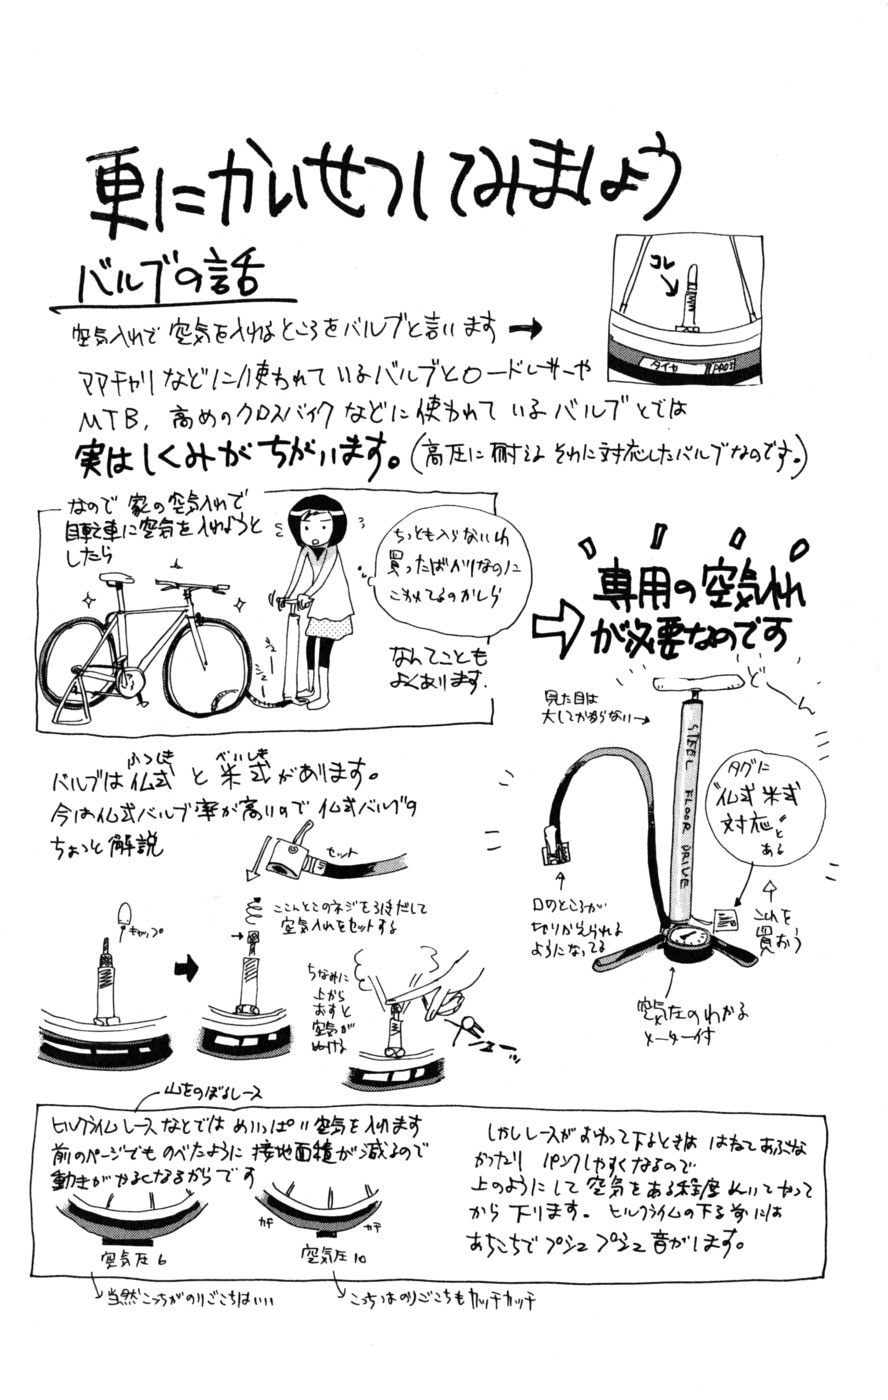 更にかいせつしてみましょう
バルブの話
コレ
タイヤ
空気入れで空気を入れるところをバルブと言います
ママチャリなどに使われているバルブとロードレーサーや
MTB,高めのクロスバイクなどに使われているバルブとでは
実はしくみがちがいます。(高圧に耐えるそれに対応したバルブなのです。)
なので家の空気入れで
自転車に空気を入れようと
したら
ちっとも入らないわ
買ったばかりなのに
こわれてるのかしら
なんてことも
よくあります.
専用の空気入れ
が必要なのです
見た目は
大してかわらない
どーん
STEEL FLOOR DRIVE
タグに
"仏式米式
対応"と
ある
これを
買おう
口のところが
切りかえられる
ようになってる
空気圧のわかる
メーター付
ふつしき べいしき
バルブは仏式と米式があります。
今は仏式バルブ率が高いので仏式バルブの
ちょっと解説
セット
キャップ
ここんとこのネジをゆるめて
空気入れをセットする
ちなみに
上から
おすと
空気が
ぬける
山をのぼるレース
ヒルクライムレースなどではめいっぱい空気を入れます
前のページでものべたように接地面積が減るので
動きがかるくなるからです
空気圧6
カチ
カチ
空気圧10
しかしレースがおわって下るときははねてあぶな
かったりパンクしやすくなるので
上のようにして空気をある程度ぬいてやって
から下ります。ヒルクライムの下る前には
あちこちでプシュプシュ音がします。
当然こっちがのりごこちはいい
こっちはのりごこちもカッチカッチ